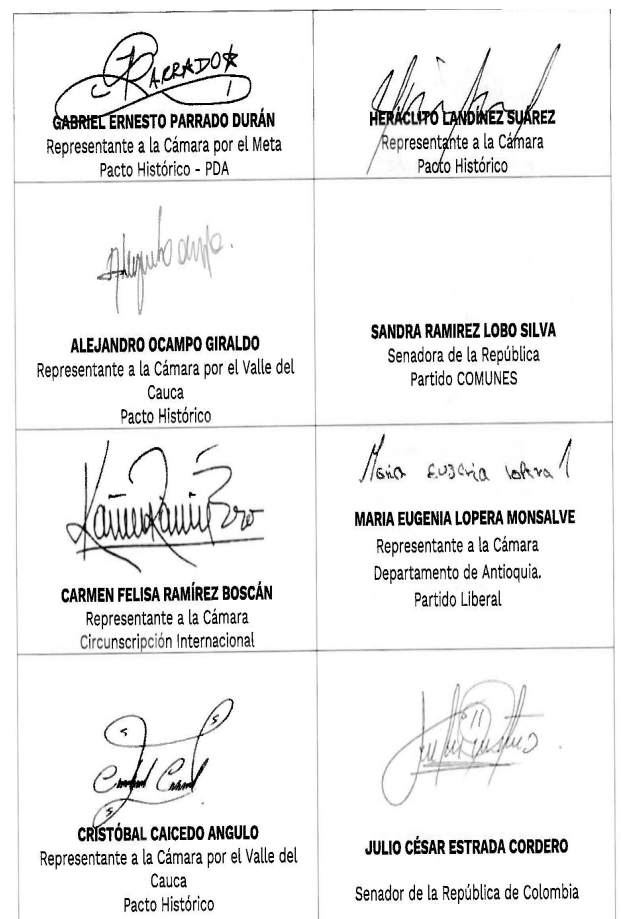 PARRADO
GABRIEL ERNESTO PARRADO DURÁN
Representante a la Cámara por el Meta
Pacto Histórico - PDA
HERÁCLITO LANDINEZ SUÁREZ
Representante a la Cámara
Pacto Histórico
ALEJANDRO OCAMPO GIRALDO
Representante a la Cámara por el Valle del
Cauca
Pacto Histórico
SANDRA RAMIREZ LOBO SILVA
Senadora de la República
Partido COMUNES
CARMEN FELISA RAMÍREZ BOSCÁN
Representante a la Cámara
Circunscripción Internacional
Maria Eugenia Lopera
MARIA EUGENIA LOPERA MONSALVE
Representante a la Cámara
Departamento de Antioquia.
Partido Liberal
CRISTÓBAL CAICEDO ANGULO
Representante a la Cámara por el Valle del
Cauca
Pacto Histórico
JULIO CÉSAR ESTRADA CORDERO
Senador de la República de Colombia